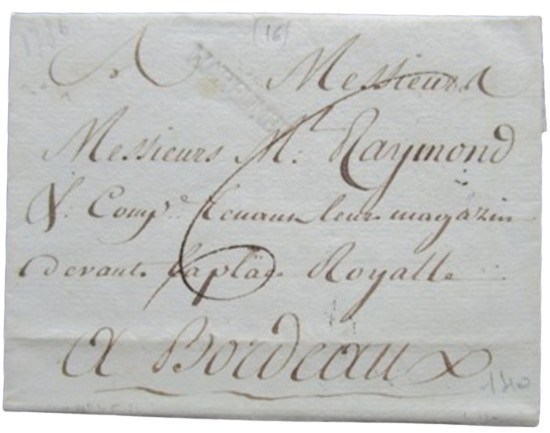 (16)
A Messieurs
Messieurs M: Raymond
& Comp.e tenant leur magazin
devant la place Royalle
a Bordeaux